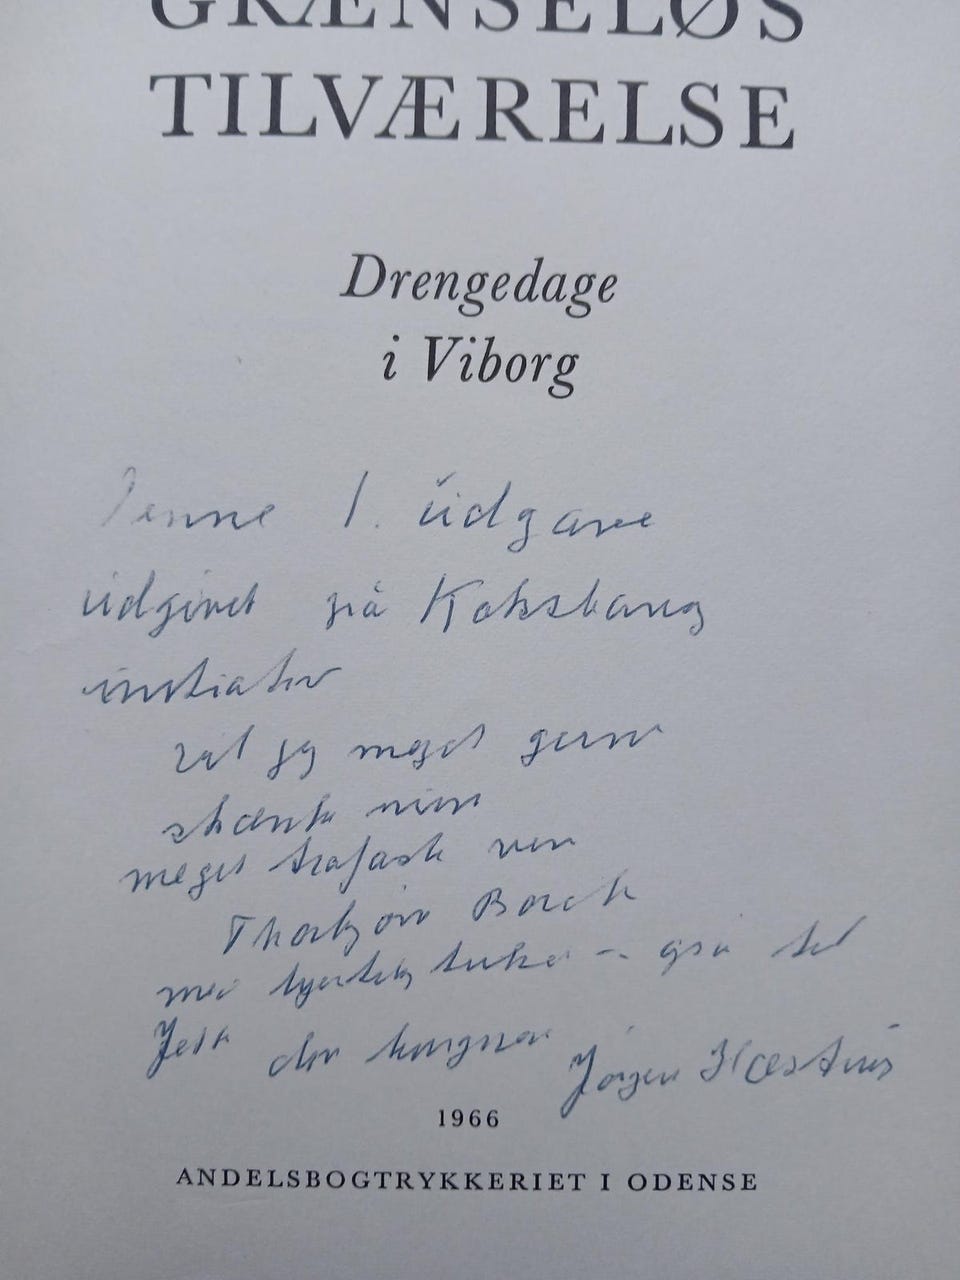 GRÆNSELØS
TILVÆRELSE
Drengedage
i Viborg
Denne 1. udgave
udgivet på Koksbang
initiativ
vil jeg meget gerne
skænke min
meget trofaste ven
Thorbjørn Borck
med hjertelig også til
Jette
Jørgen Hæstrup
1966
ANDELSBOGTRYKKERIET I ODENSE